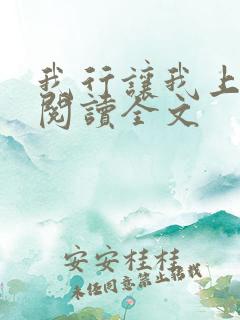 我行讓我上
閱讀全文
安安桂桂
未任同意禁止搭載